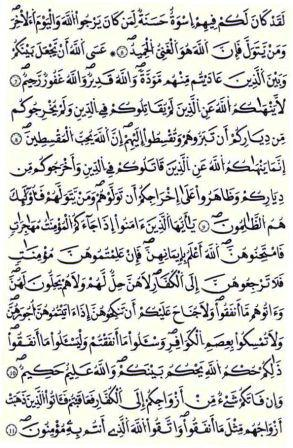 لَقَدْ كَانَ لَكُمْ فِيهِمْ إِسْوَةٌ حَسَنَةٌ لِمَن كَانَ يَرْجُوا اللَّهَ وَالْيَوْمَ الْآخِرَ
وَمَن يَتَوَلَّ فَإِنَّ اللَّهَ هُوَ الْغَنِيُّ الْحَمِيدُ ۝ عَسَى اللَّهُ أَن يَجْعَلَ بَيْنَكُمْ
وَبَيْنَ الَّذِينَ عَادَيْتُم مِنْهُم مَوَدَّةً وَاللَّهُ قَدِيرٌ وَاللَّهُ غَفُورٌ رَحِيمٌ ۝
لَا يَنْهَاكُمُ اللَّهُ عَنِ الَّذِينَ لَمْ يُقَاتِلُوكُمْ فِي الدِّينِ وَلَمْ يُخْرِجُوكُم
مِن دِيَارِكُمْ أَن تَبَرُّوهُمْ وَتُقْسِطُوا إِلَيْهِمْ إِنَّ اللَّهَ يُحِبُّ الْمُقْسِطِينَ ۝
إِنَّمَا يَنْهَاكُمُ اللَّهُ عَنِ الَّذِينَ قَاتَلُوكُمْ فِي الدِّينِ وَأَخْرَجُوكُم مِن
دِيَارِكُمْ وَظَاهَرُوا عَلَى إِخْرَاجِكُمْ أَن تَوَلَّوْهُمْ وَمَن يَتَوَلَّهُمْ فَأُولَئِكَ
هُمُ الظَّالِمُونَ ۝ يَا أَيُّهَا الَّذِينَ ءَامَنُوا إِذَا جَاءَكُمُ الْمُؤْمِنَاتُ مُهَاجِرَاتٍ
فَامْتَحِنُوهُنَّ اللَّهُ أَعْلَمُ بِإِيمَانِهِنَّ فَإِنْ عَلِمْتُمُوهُنَّ مُؤْمِنَاتٍ
فَلَا تَرْجِعُوهُنَّ إِلَى الْكُفَّارِ لَا هُنَّ حِلٌّ لَهُمْ وَلَا هُمْ يَحِلُّونَ لَهُنَّ
وَءَاتُوهُم مَا أَنفَقُوا وَلَا جُنَاحَ عَلَيْكُمْ أَن تَنكِحُوهُنَّ إِذَا ءَاتَيْتُمُوهُنَّ أُجُورَهُنَّ
وَلَا تُمْسِكُوا بِعِصَمِ الْكَوَافِرِ وَسْئَلُوا مَا أَنفَقْتُمْ وَلْيَسْئَلُوا مَا أَنفَقُوا
ذَلِكُمْ حُكْمُ اللَّهِ يَحْكُمُ بَيْنَكُمْ وَاللَّهُ عَلِيمٌ حَكِيمٌ ۝
وَإِن فَاتَكُمْ شَيْءٌ مِنْ أَزْوَاجِكُمْ إِلَى الْكُفَّارِ فَعَاقَبْتُمْ فَئَاتُوا الَّذِينَ ذَهَبَتْ
أَزْوَاجُهُم مِثْلَ مَا أَنفَقُوا وَاتَّقُوا اللَّهَ الَّذِي أَنتُم بِهِ مُؤْمِنُونَ ۝